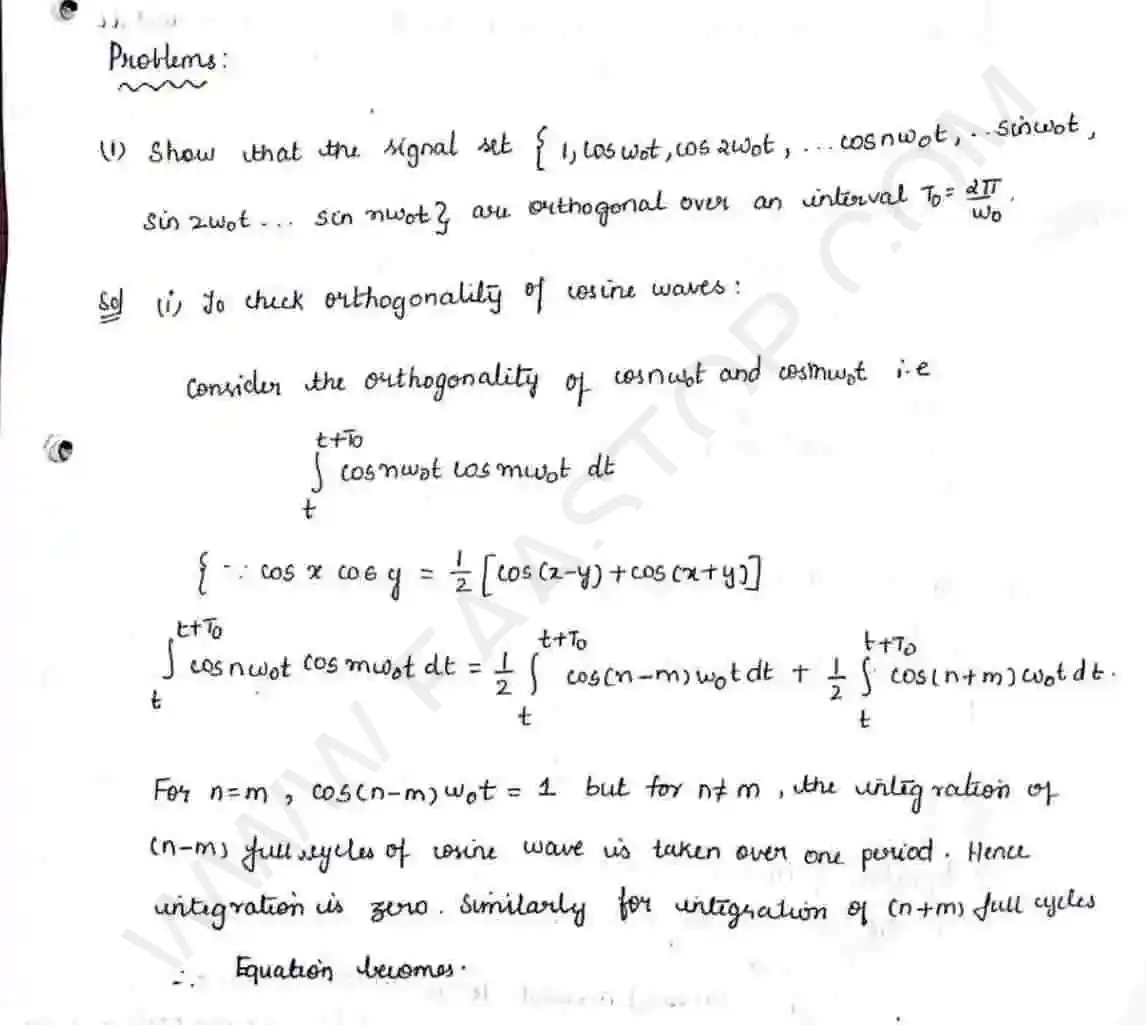 Problems:
(1) Show that the signal set { 1, cos ω₀t, cos 2ω₀t, ... cos nω₀t, .. sin ω₀t,
sin 2ω₀t ... sin nω₀t} are orthogonal over an interval T₀ = 2π/ω₀.
Sol (i) To check orthogonality of cosine waves:
Consider the orthogonality of cosnω₀t and cosmω₀t i.e
∫ₜ^(t+T₀) cos nω₀t cos mω₀t dt
{ ∵ cos x cos y = 1/2 [cos(x-y) + cos(x+y)]
∫ₜ^(t+T₀) cos nω₀t cos mω₀t dt = 1/2 ∫ₜ^(t+T₀) cos(n-m)ω₀t dt + 1/2 ∫ₜ^(t+T₀) cos(n+m)ω₀t dt.
For n=m, cos(n-m)ω₀t = 1 but for n≠m, the integration of
(n-m) full cycles of cosine wave is taken over one period. Hence
integration is zero. Similarly for integration of (n+m) full cycles
∴ Equation becomes.
WWW.FAASTOP.COM